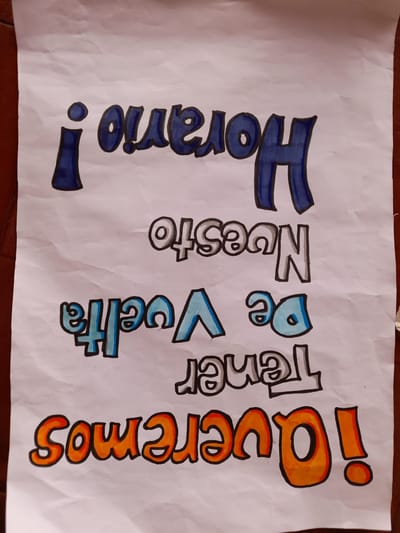 ¡Queremos
Tener
De Vuelta
Nuesto
Horario!